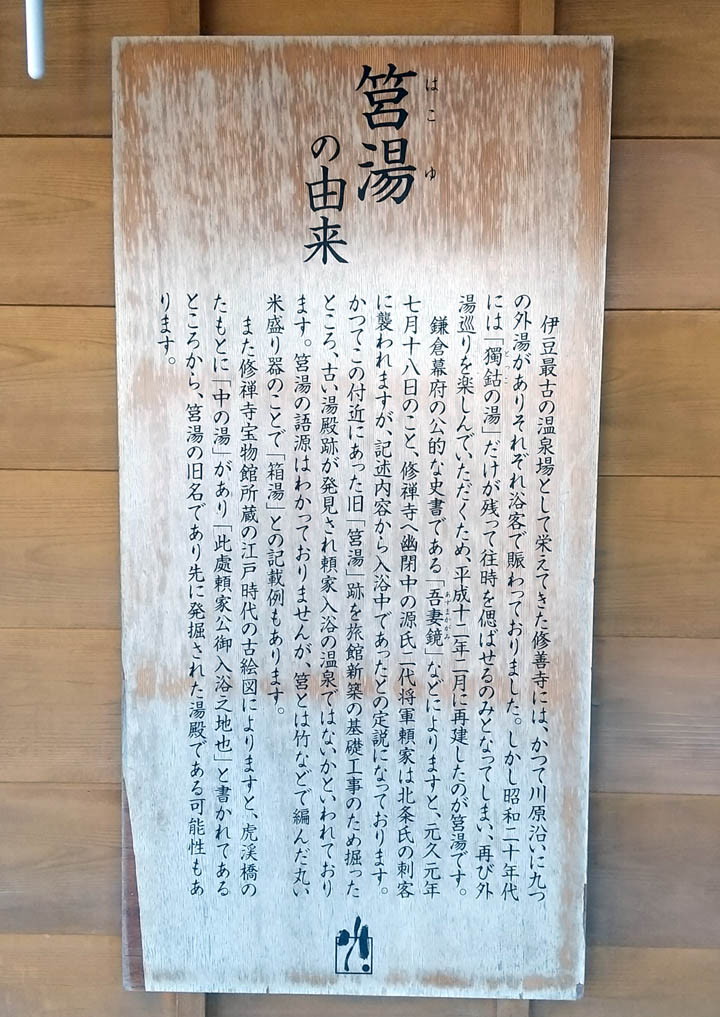 筥湯
はこゆ
の由来
伊豆最古の温泉場として栄えてきた修善寺には、かつて川原沿いに九つ
の外湯がありそれぞれ浴客で賑わっておりました。しかし昭和二十年代
には「獨鈷の湯」だけが残って往時を偲ばせるのみとなってしまい、再び外
とっこ
湯巡りを楽しんでいただくため、平成十二年二月に再建したのが筥湯です。
鎌倉幕府の公的な史書である「吾妻鏡」などによりますと、元久元年
あずまかがみ
七月十八日のこと、修禅寺へ幽閉中の源氏二代将軍頼家は北条氏の刺客
に襲われますが、記述内容から入浴中であったとの定説になっております。
かつてこの付近にあった旧「筥湯」跡を旅館新築の基礎工事のため掘った
ところ、古い湯殿跡が発見され頼家入浴の温泉ではないかといわれており
ます。筥湯の語源はわかっておりませんが、筥とは竹などで編んだ丸い
米盛り器のことで「箱湯」との記載例もあります。
また修禅寺宝物館所蔵の江戸時代の古絵図によりますと、虎渓橋の
たもとに「中の湯」があり「此處頼家公御入浴之地也」と書かれてある
ところから、筥湯の旧名であり先に発掘された湯殿である可能性もあ
ります。